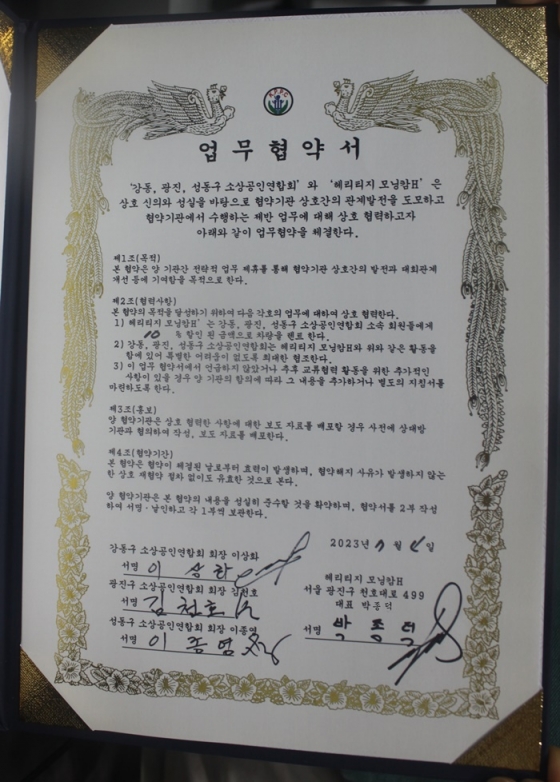 업무협약서
'강동, 광진, 성동구 소상공인연합회' 와 '헤리티지 모닝캄H' 은
상호 신의와 성실을 바탕으로 협약기관 상호간의 관계발전을 도모하고
협약기관에서 수행하는 제반 업무에 대해 상호 협력하고자
아래와 같이 업무협약을 체결한다.
제1조(목적)
본 협약은 양 기관간 전략적 업무 제휴를 통해 협약기관 상호간의 발전과 대외관계
개선 등에 기여함을 목적으로 한다.
제2조(협력사항)
본 협약의 목적을 달성하기 위하여 다음 각호의 업무에 대하여 상호 협력한다.
1) 헤리티지 모닝캄H' 는 강동, 광진, 성동구 소상공인연합회 소속 회원들에게
10 % 할인 된 금액으로 차량을 렌트 한다.
2) 강동, 광진, 성동구 소상공인연합회는 헤리티지 모닝캄H와 위와 같은 활동을
함에 있어 특별한 어려움이 없도록 최대한 협조한다.
3) 이 업무 협약서에서 언급하지 않았거나 추후 교류협력 활동을 위한 추가적인
사항이 있을 경우 양 기관의 합의에 따라 그 내용을 추가하거나 별도의 지침서를
마련하도록 한다.
제3조(홍보)
양 협약기관은 상호 협력한 사항에 대한 보도 자료를 배포할 경우 사전에 상대방
기관과 협의하여 작성, 보도 자료를 배포한다.
제4조(협약기간)
본 협약은 협약이 체결된 날로부터 효력이 발생하며, 협약해지 사유가 발생하지 않는
한 상호 재협약 절차 없이도 유효한 것으로 본다.
양 협약기관은 본 협약의 내용을 성실히 준수할 것을 확약하며, 협약서를 2부 작성
하여 서명·날인하고 각 1부씩 보관한다.
2023년 7 월 일
강동구 소상공인연합회 회장 이상화
서명 이 상 화
광진구 소상공인연합회 회장 김천호
서명 김 천 호
성동구 소상공인연합회 회장 이종영
서명 이 종 영
헤리티지 모닝캄H
서울 광진구 천호대로 499
대표 박종덕
서명 박 종 덕